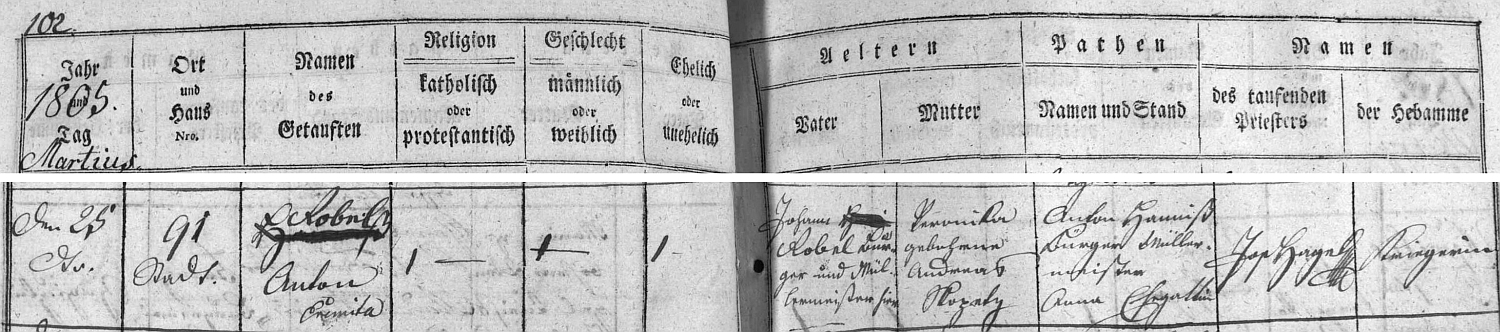 102.
Jahr
1805.
und
Tag
Martius.
Ort
und
Haus
Nro.
Namen
des
Getauften
Religion
katholisch
oder
protestantisch
Geschlecht
männlich
oder
weiblich
Ehelich
oder
unehelich
Aeltern
Vater
Mutter
Pathen
Namen und Stand
Namen
des taufenden
Priesters
der Hebamme
den 25
91
Stadt.
Robel
Anton
1 —
1 —
1 -
Johann
Robel Bür-
ger und Mül-
lermeister hier
Veronika
gebohrne
Andreas
Skopety
Anton Hanniß
Bürger Müller-
meister
Anna Ehegattin
Jos Hagel
Kriegerin